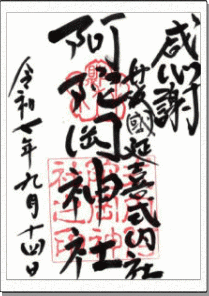 感謝
丹波國延喜式内社
阿陀岡神社
令和七年九月十四日